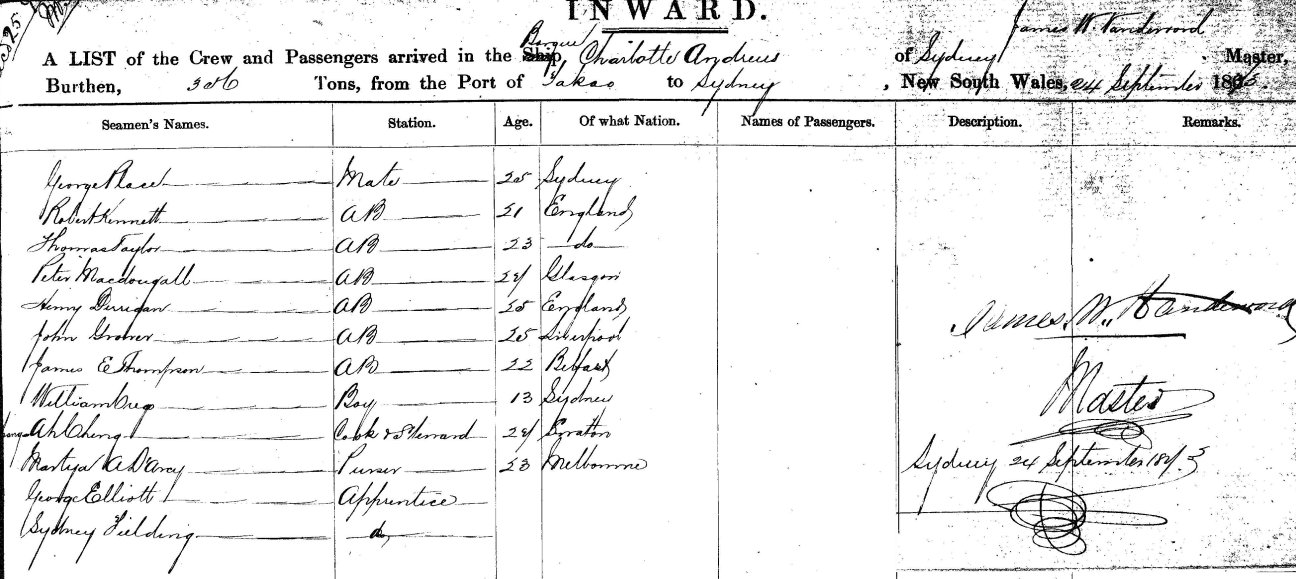 INWARD.
James W. Vandervord
A LIST of the Crew and Passengers arrived in the Ship, Barque Charlotte Andrews of Sydney Master,
Burthen, 306 Tons, from the Port of Takao to Sydney, New South Wales, 24 September 1873.
Seamen's Names. Station. Age. Of what Nation. Names of Passengers. Description. Remarks.
George Place Mate 25 Sydney
Robert Kennett AB 21 England
Thomas Taylor AB 23 do
Peter Macdougall AB 24 Glasgow
Henry Derrigan AB 25 England
John Grover AB 25 Liverpool
James E Thompson AB 22 Belfast
William Boy 13 Sydney
Ah Cheng Cook & Steward 24
A D'Arcy Purser 23 Melbourne
George Elliott Apprentice
Sydney Fielding do
James W. Vandervord
Master
Sydney 24 September 1873